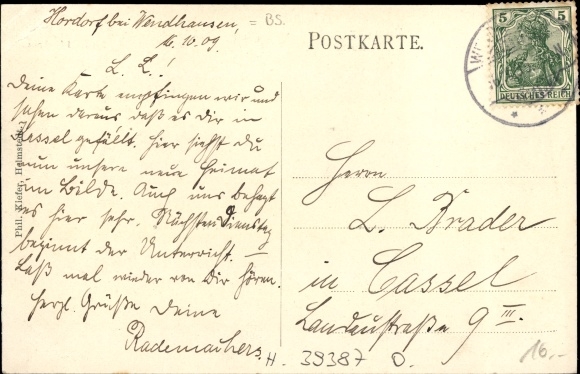 Hordorf bei Wendhausen, = BS.
16.10.09.
L. L.!
Deine Karte empfingen wir und
sehen daraus daß es dir in
Cassel gefällt. Hier siehst du
nun unsere neue Heimat
im Bilde. Auch uns behagt
es hier sehr. Nächsten Dienstag
beginnt der Unterricht. —
Laß mal wieder von Dir hören.
Herzl. Grüße Deine
Rademachers.
Phil. Kiefer, Helmstedt.
POSTKARTE.
5 5
DEUTSCHES REICH
Herrn
L. Brader
in Cassel
Landaustraße 9 III.
H. 39387 O.
16.-